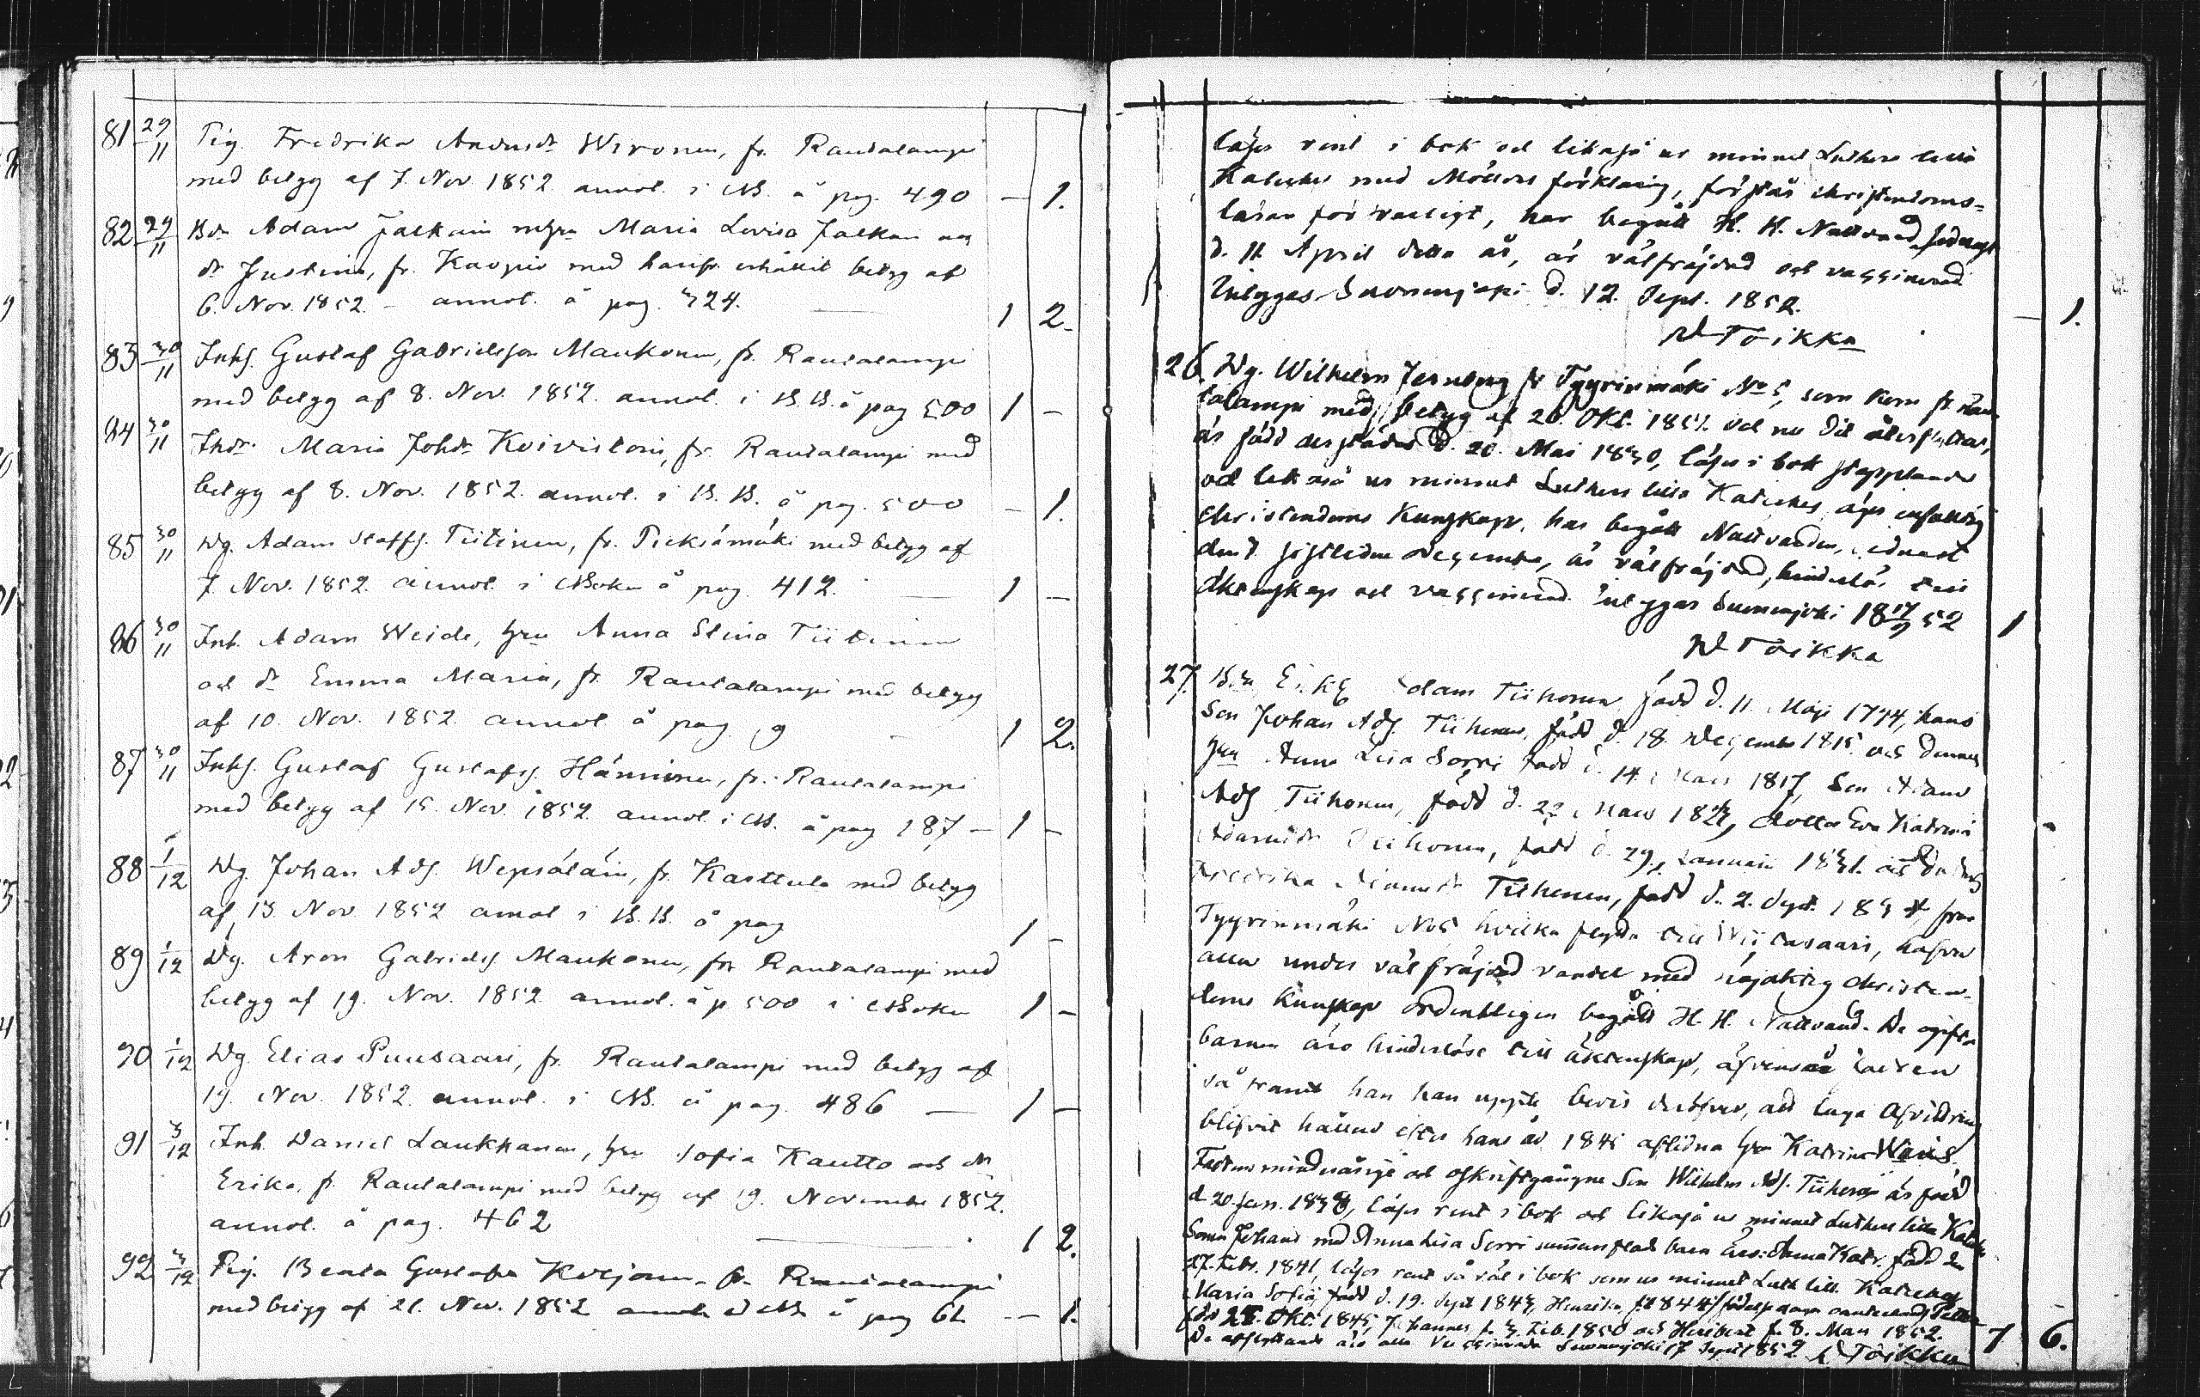 81 29/11 Pig. Fredrika Andersdr Wironen, fr. Rautalampi
med betyg af 7. Nov 1852 annot. i MB. å pag. 490 — 1.
82 29/11 Bdn Adam Jalkain m hru Maria Lovisa Jalkan och
dr Justina, fr. Kuopio med hans fr. erhållit betyg af
6. Nov. 1852 – annot. å pag. 324. 1 2.
83 30/11 Inhs. Gustaf Gabrielsson Maukonen, fr. Rautalampi
med betyg af 8. Nov. 1852. annot. i B.B. å pag 500 1 –
84 30/11 Inhdr. Maria Johdr Koivistoin, fr. Rautalampi med
betyg af 8. Nov. 1852. annot. i B.B. å pag. 500 – 1.
85 30/11 Dg. Adam Staffs. Tiitinen, fr. Pieksämäki med betyg af
7. Nov. 1852. annot. i MBoken å pag. 412. 1 –
86 30/11 Inh. Adam Weide, hru Anna Stina Tiitinen
och dr Emma Maria, fr. Rautalampi med betyg
af 10. Nov. 1852 annot å pag. 9 1 2.
87 30/11 Inhs. Gustaf Gustafss. Hänninen, fr. Rautalampi
med betyg af 15. Nov. 1852. annot. i MB. å pag 187, – 1 –
88 1/12 Dg. Johan Ads. Wepsäläin, fr. Karttula med betyg
af 13. Nov 1852 annot i B.B. å pag 1 –
89 1/12 Dg. Aron Gabriels Maukonen, fr. Rautalampi med
betyg af 19. Nov. 1852 annot. å p 500 i MBoken 1 –
90 1/12 Dg. Elias Puusaari, fr. Rautalampi med betyg af
19. Nov. 1852. annot. i MB. å pag. 486 — 1 –
91 3/12 Inh. Daniel Laukkanen, hru Sofia Kautto och dr
Erika, fr. Rautalampi med betyg af 19. November 1852.
annot. å pag. 462 1 2.
92 3/12 Pig. Beata Gustafsdr fr. Rautalampi
med betyg af 21. Nov. 1852 annot. i MB å pag 62 — 1.
läser rent i bok och likaså ur minnet Luthers lilla
Kateches med Möllers förklaring, förstår christendoms-
läran försvarligt, har begått H. H. Nattvard sednast
d. 11 April detta år, är välfräjdad och vaccinerad
intygas Suonenjoki d. 12. Sept. 1852. — 1.
Toikka
26. Dg. Wilhelm Jernberg fr Tyyrinmäki No 5, som kom fr Rau-
talampi med betyg af 26. Okt. 1851. och nu dit återflyttar,
är född derstädes d. 20. Mai 1830, läser i bok stapplande
och likaså ur minnet Luthers lilla Kateches, äger enfaldig
christendoms kunskap, har begått Nattvarden, sednast
den sistlidne December, är välfräjdad, hinderlös till
äktenskap och vaccinerad. Intygas Suonenjoki 18 17/9 52 1
Toikka
27. Adam Tiihonen född d. 11. Maji 1774, hans
Son Johan Ads. Tiihonen, född d. 18. December 1815 och dennes
hru Anna Lisa Sorri född d. 14. Mars 1817, Son Adam
Ads Tiihonen, född d. 22 Mars dotter Eva Katrina
Adamsdr Tiihonen, född d. 29. Januarii
Fredrika Adamsdr Tiihonen, född d. 2. Sept. från
Tyyrinmäki No5 hvilka flytta till Wiitasaari, hafva
alla under välfräjdad vandel med nöjaktig christen-
doms kunskap ordentligen begått H. H. Nattvard. De ogifta
barnen äro hinderlöse till äktenskap, äfvensom
så framt han kan uppte bevis deröfver, att laga afvittring
blifvit hållen efter hans år 1845 aflidna hru Katrina
minderårige och oskriftgångne Son Wilhelm Ads. Tiihonen är född
d 20. Jan. 1838, läser rent i bok och likaså ur minnet Luthers lilla Kateches
Sonen Johans med Anna Lisa Sorri sammanaflade barn äro: Anna Katr. född den
27. Febr. 1841 läser rent så väl i bok som ur minnet Luth lill. Kateches
Maria Sofia, född d. 19. Sept 1843, Henrika, f. 1844
född 25. Okt. 1845, Johannes f. 3. Feb. 1850 och Heribert f. 8. Mars 1852.
De afflyttande äro alla vaccinerade Suonenjoki 17 Sept 1852. Toikka 7 6.